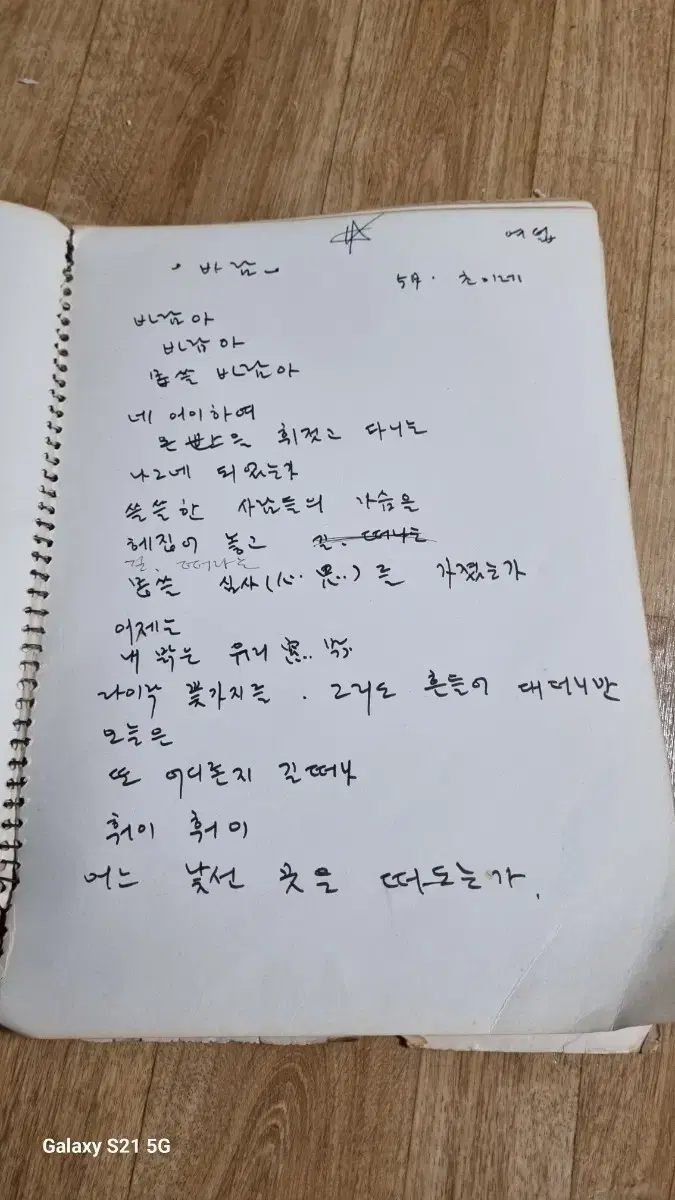 바람
5月. 초이레
바람아
바람아
몹쓸 바람아
네 어이하여
온 世上을 휘젓고 다니는
나그네 되었는가
쓸쓸한 사람들의 가슴을
헤집어 놓고
길. 떠나는
몹쓸 심사(心.. 思..)를 가졌는가
어제는
내 맑은 유리 窓.. 밖
나이누 꽃가지를 . 그리도 흔들어 대더니만
오늘은
또 어디론지 길떠나
훠이 훠이
어느 낯선 곳을 떠도는가.
Galaxy S21 5G